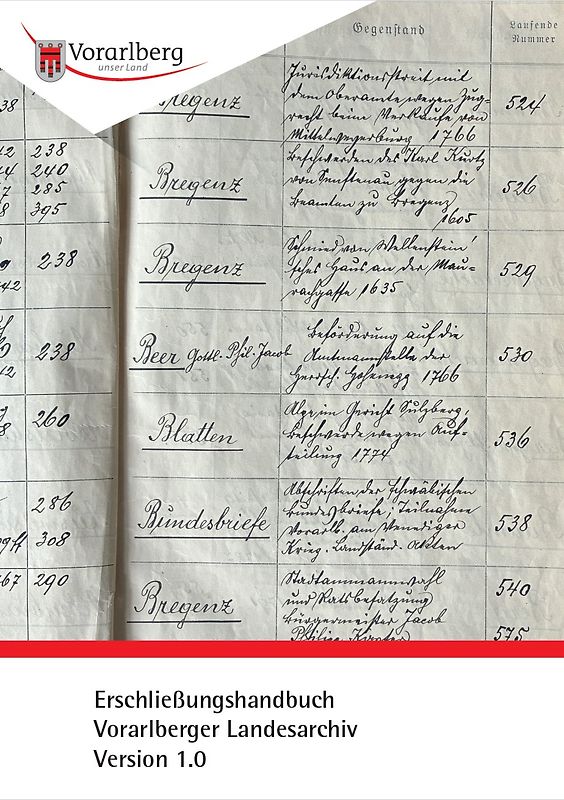 Vorarlberg
unser Land
Gegenstand
Laufende
Nummer
38
Bregenz
Jurisdiktionsstreit mit
dem Oberamte wegen Zug-
recht beim Verkaufe von
Mittelweyerburg 1766
524
42 238
44 240
7 285
8 395
Bregenz
Beschwerden des Karl Kurtz
von Senftenau gegen die
Beamten zu Bregenz
1605
526
238
42
Bregenz
Schmied von Wellenstein'
sches Haus an der Mau-
rachgasse 1635
529
238
12
Beer Gottl. Phil. Jacob
Beförderung auf die
Amtmannstelle der
Herrsch. Hohenegg 1766
530
260
8
Blatten
Alpe in Gericht Sulzberg,
Beschwerde wegen Auf-
teilung 1774
536
286
308
Bundesbriefe
Abschriften der schwäbischen
Bundesbriefe; Teilnahme
Vorarlb. am Venediger
Krieg. Landständ. Akten
538
67 290
Bregenz
Stadtammannwahl
und Ratsbesatzung
Bürgermeister Jacob
540
575
Erschließungshandbuch
Vorarlberger Landesarchiv
Version 1.0